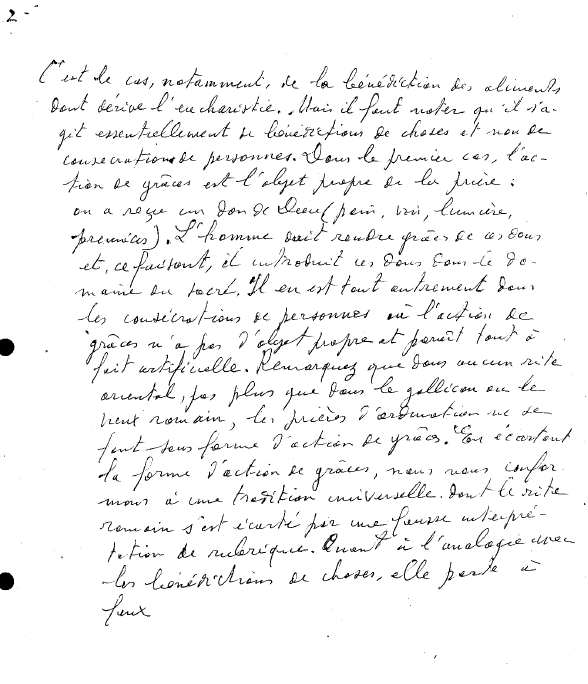 2-
C'est le cas, notamment, de la bénédiction des aliments
dont dérive l'eucharistie. Mais il faut noter qu'il s'a-
git essentiellement de bénédictions de choses et non de
consécrations de personnes. Dans le premier cas, l'ac-
tion de grâces est l'objet propre de la prière :
on a reçu un don de Dieu (pain, vin, lumière,
prémices). L'homme doit rendre grâces de ces dons
et, ce faisant, il introduit ces dons dans le do-
maine du sacré. Il en est tout autrement dans
les consécrations de personnes où l'action de
grâces n'a pas d'objet propre et paraît tout à
fait artificielle. Remarquez que dans aucun rite
oriental, pas plus que dans le gallican ou le
vieux romain, les prières d'ordination ne se
font sous forme d'action de grâces. En écartant
la forme d'action de grâces, nous nous confor-
mons à une tradition universelle dont le rite
romain s'est écarté par une fausse interpré-
tation de rubrique. Quant à l'analogie avec
les bénédictions de choses, elle porte à
faux